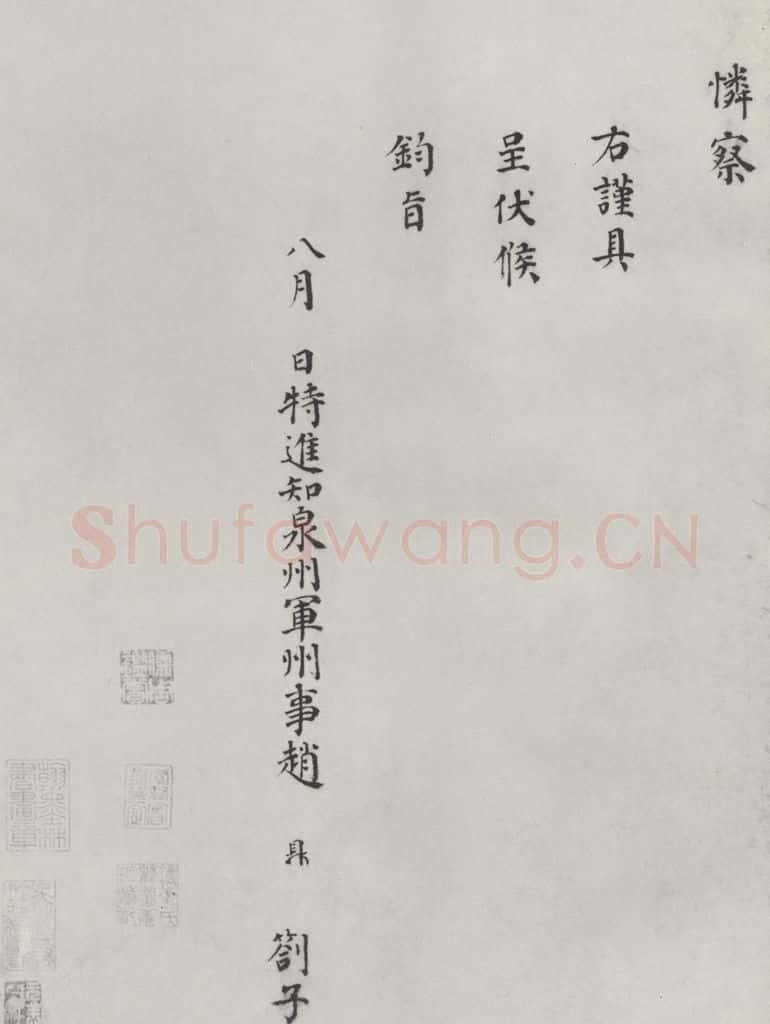 憐察
右謹具
呈伏候
鈞旨
八月 日特進知泉州軍州事趙 鼎 劄子
Shufawang.CN